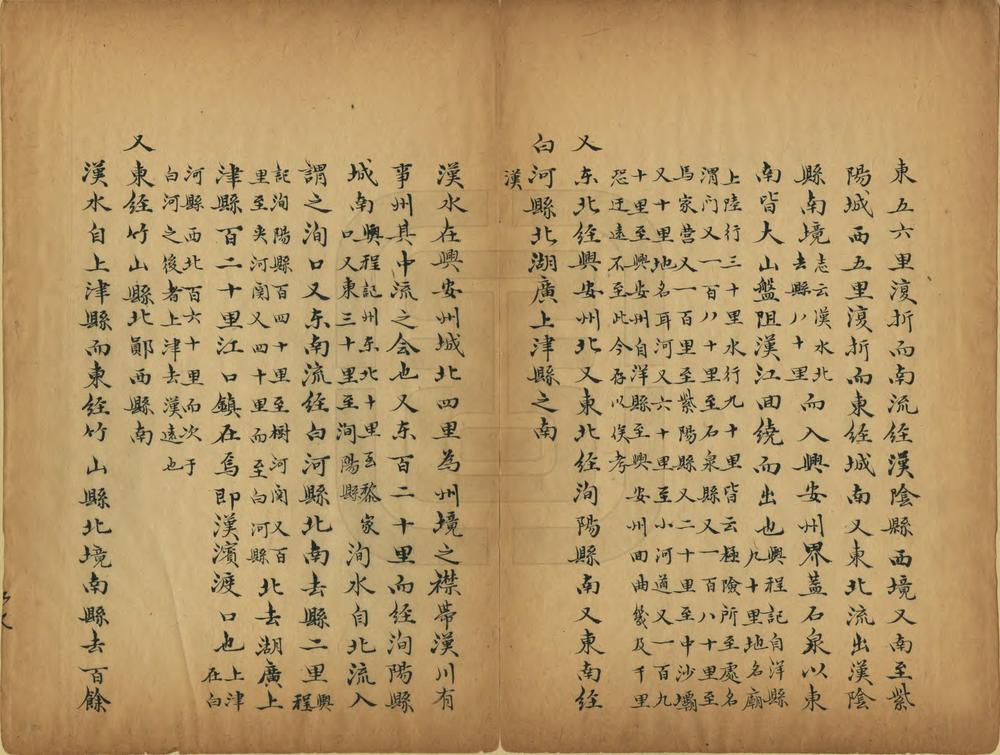 東五六里復折而南流經漢陰縣西境又南至紫
陽城西五里復折而東經城南又東北流出漢陰
縣南境志云漢水北去縣八十里而入興安州界蓋石泉以東
南皆大山盤阻漢江回繞而出也輿程記自洋縣九十里地名廟
上陸行三十里水行九十里皆云極險所至處名
渭門又一百八十里至石泉縣又一百八十里至
馬家營又一百里至紫陽縣又二十里至中沙壩
又十里地名耳河又六十里至小河道又一百九
十里至興安州自洋縣至興安州回曲幾及千里
恐迂遠不至此今存以俟考
又东北经興安州北又東北經洵陽縣南又東南經
白河縣北湖廣上津縣之南
漢
漢水在興安州城北四里為州境之襟帶漢川有
事州其中流之会也又东百二十里而经洵陽縣
城南輿程記州东北十里至黎家口又東三十里至洵陽縣洵水自北流入
謂之洵口又东南流经白河縣北南去縣二里輿程
記洵陽縣百四十里至樹河関又百
里至夾河関又四十里而至白河縣北去湖廣上
津縣百二十里江口鎮在焉即漢濱渡口也上津在白
河縣西北百六十里而次于
白河之後者上津去漢遠也
又東经竹山縣北鄖西縣南
漢水自上津縣而東经竹山縣北境南縣去百餘